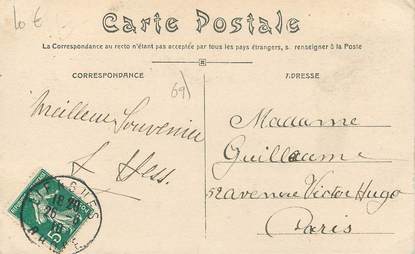 10 €
Carte Postale
La Correspondance au recto n'étant pas acceptée par tous les pays étrangers, s. renseigner à la Poste
CORRESPONDANCE
69)
Meilleur Souvenir
Hess.
ADRESSE
Madame
Guillaume
52 avenue Victor Hugo
Paris